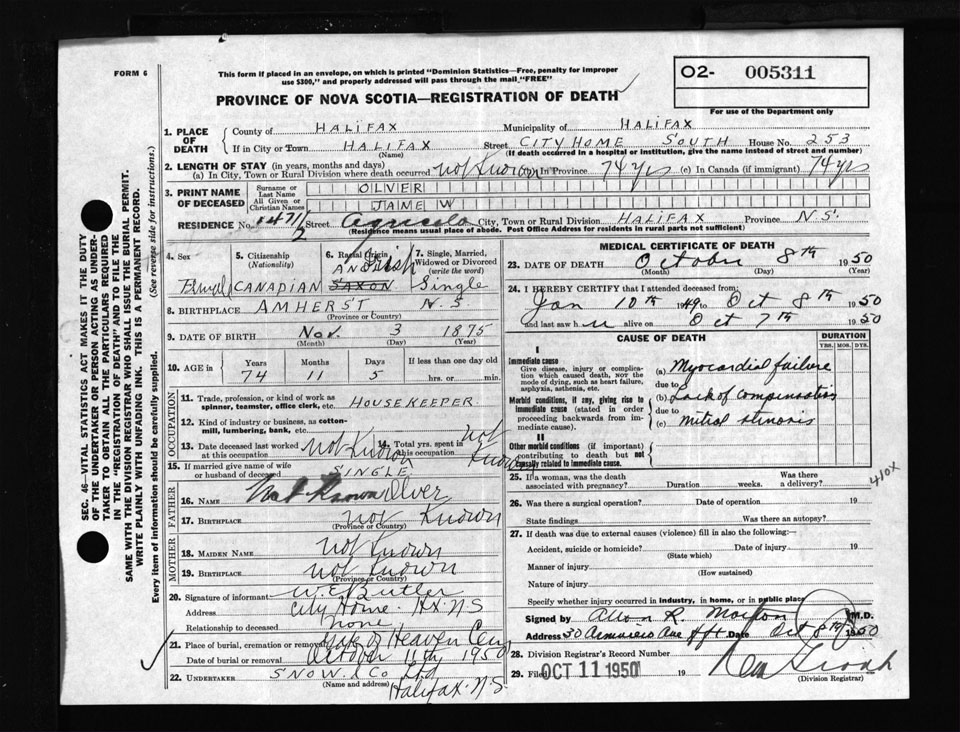 FORM 6
This form if placed in an envelope, on which is printed "Dominion Statistics—Free, penalty for improper
use $300," and properly addressed will pass through the mail, "FREE"
PROVINCE OF NOVA SCOTIA—REGISTRATION OF DEATH
O2- 005311
For use of the Department only
SEC. 46—VITAL STATISTICS ACT MAKES IT THE DUTY
OF THE UNDERTAKER OR PERSON ACTING AS UNDER-
TAKER TO OBTAIN ALL THE PARTICULARS REQUIRED
IN THE "REGISTRATION OF DEATH" AND TO FILE THE
SAME WITH THE DIVISION REGISTRAR WHO SHALL ISSUE THE BURIAL PERMIT.
WRITE PLAINLY WITH UNFADING INK. THIS IS A PERMANENT RECORD.
Every item of information should be carefully supplied. (See reverse side for instructions.)
1. PLACE OF DEATH
County of HALIFAX Municipality of HALIFAX
If in City or Town HALIFAX Street CITY HOME SOUTH House No. 253
(Name) (If death occurred in a hospital or institution, give the name instead of street and number)
2. LENGTH OF STAY (in years, months and days)
(a) In City, Town or Rural Division where death occurred not Known (b) In Province 74 yrs (c) In Canada (if immigrant) 74 yrs
3. PRINT NAME OF DECEASED
Surname or Last Name OLVER
All Given or Christian Names JANE W
RESIDENCE No. 147 1/2 Street Agricola City, Town or Rural Division HALIFAX Province N.S.
(Residence means usual place of abode. Post Office Address for residents in rural parts not sufficient)
4. Sex 5. Citizenship (Nationality) 6. Racial Origin 7. Single, Married, Widowed or Divorced (write the word)
CANADIAN ANGLO SAXON Irish Single
8. BIRTHPLACE AMHERST N.S
(Province or Country)
9. DATE OF BIRTH Nov. 3 1875
(Month) (Day) (Year)
10. AGE in Years Months Days If less than one day old
74 11 5 hrs. or min.
OCCUPATION
11. Trade, profession, or kind of work as
spinner, teamster, office clerk, etc. HOUSEKEEPER.
12. Kind of industry or business, as cotton-
mill, lumbering, bank, etc.
13. Date deceased last worked at this occupation not Known 14. Total yrs. spent in this occupation not Known
15. If married give name of wife
or husband of deceased SINGLE
FATHER
16. Name Not Known Olver
17. Birthplace not Known
(Province or Country)
MOTHER
18. Maiden Name not Known
19. Birthplace not Known
(Province or Country)
20. Signature of informant W.E. Butler
Address City Home. Hx. N.S
Relationship to deceased none
21. Place of burial, cremation or removal Gate of Heaven Cem
Date of burial or removal October 11th 1950
22. UNDERTAKER SNOW & Co Ltd
(Name and address) Halifax. N.S.
MEDICAL CERTIFICATE OF DEATH
23. DATE OF DEATH October 8th 1950
(Month) (Day) (Year)
24. I HEREBY CERTIFY that I attended deceased from:
Jan 10th 1949 to Oct 8th 1950
and last saw her alive on Oct 7th 1950
CAUSE OF DEATH
DURATION
YRS. MOS. DYS.
I
Immediate cause
Give disease, injury or complica-
tion which caused death, NOT the
mode of dying, such as heart failure,
asphyxia, asthenia, etc.
(a) Myocardial failure
due to
Morbid conditions, if any, giving rise to
immediate cause (stated in order
proceeding backwards from im-
mediate cause).
(b) Lack of compensation
due to
(c) Mitral stenosis
II
Other morbid conditions (if important)
contributing to death but not
causally related to immediate cause.
25. If a woman, was the death
associated with pregnancy? Duration weeks. Was there a delivery?
410X
26. Was there a surgical operation? Date of operation 19
State findings Was there an autopsy?
27. If death was due to external causes (violence) fill in also the following:—
Accident, suicide or homicide? Date of injury 19
(State which)
Manner of injury
(How sustained)
Nature of injury
Specify whether injury occurred in industry, in home, or in public place
Signed by R. Morton M.D.
Address 30 Ave Date Oct 8th 1950
28. Division Registrar's Record Number
29. Filed OCT 11 1950 19
(Division Registrar)